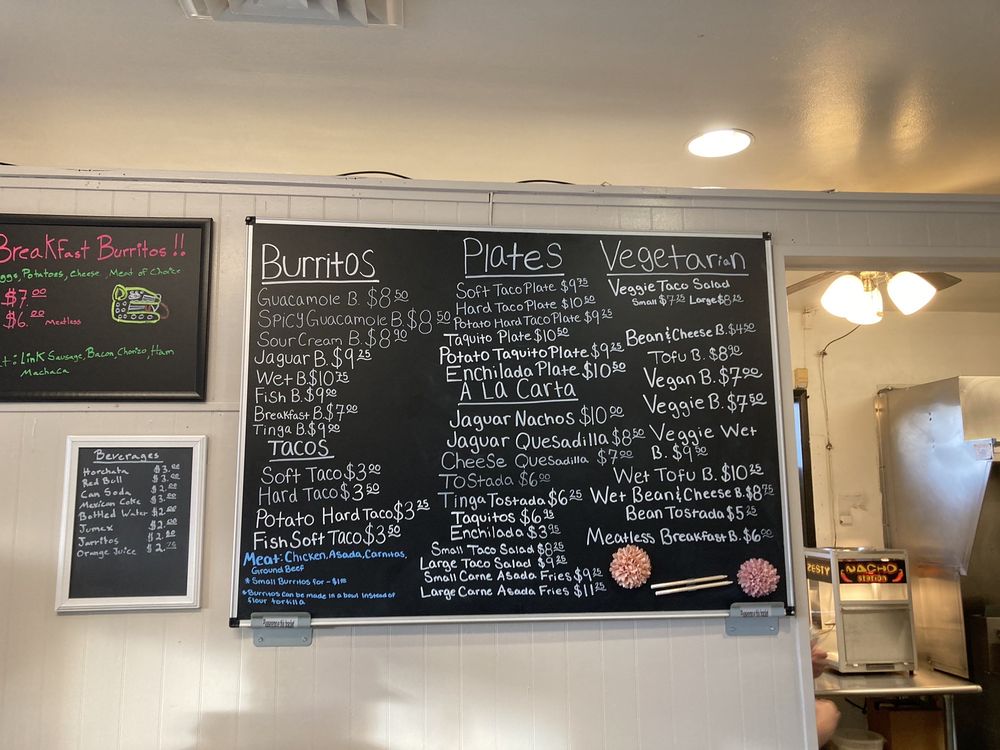 BreakFast Burritos!!
Potatoes, Cheese, Meat of Choice
$7.00
$6.00 Meatless
Link Sausage, Bacon, Chorizo, Ham
Machaca
Beverages
Horchata $3.00
Red Bull $3.00
Can Soda $2.00
Mexican Coke $3.00
Bottled Water $2.00
Jumex $2.00
Jarritos $2.00
Orange Juice $2.75
Burritos
Guacamole B. $8.50
Spicy Guacamole B. $8.50
Sour Cream B. $8.00
Jaguar B. $9.25
Wet B. $10.75
Fish B. $9.00
Breakfast B. $7.00
Tinga B. $9.00
Tacos
Soft Taco $3.00
Hard Taco $3.50
Potato Hard Taco $3.25
Fish Soft Taco $3.50
Meat: Chicken, Asada, Carnitas,
Ground Beef
* Small Burritos for -$1.00
* Burritos can be made in a bowl instead of
flour tortilla
Plates
Soft Taco Plate $9.75
Hard Taco Plate $10.50
Potato Hard Taco Plate $9.25
Taquito Plate $10.50
Potato Taquito Plate $9.25
Enchilada Plate $10.50
A La Carta
Jaguar Nachos $10.00
Jaguar Quesadilla $8.50
Cheese Quesadilla $7.00
Tostada $6.00
Tinga Tostada $6.25
Taquitos $6.75
Enchilada $3.75
Small Taco Salad $8.25
Large Taco Salad $9.25
Small Carne Asada Fries $9.25
Large Carne Asada Fries $11.25
Vegetarian
Veggie Taco Salad
Small $7.25 Large $8.25
Bean & Cheese B. $4.50
Tofu B. $8.00
Vegan B. $7.00
Veggie B. $7.50
Veggie Wet
B. $9.50
Wet Tofu B. $10.25
Wet Bean & Cheese B. $8.75
Bean Tostada $5.25
Meatless Breakfast B. $6.00
ZESTY
NACHO
station